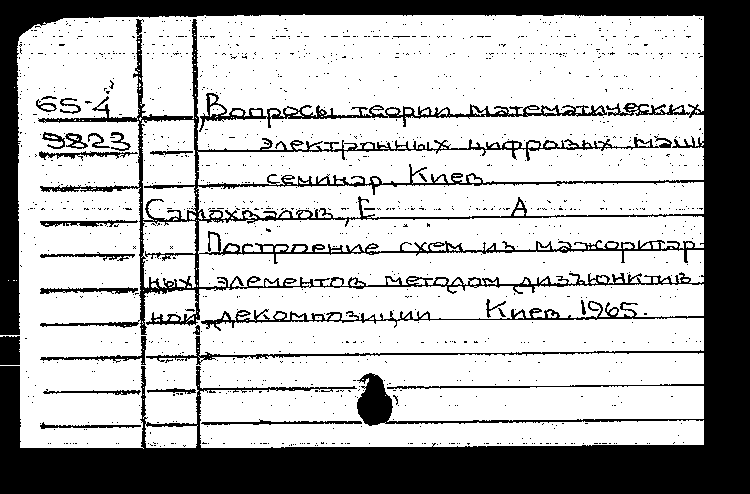 65-4 Вопросы теории математических
9823 электронных цифровых маши
семинар. Киев
Самохвалов, Е А
Построение схем из мажоритар-
ных элементов методом дизъюнктив-
ной декомпозиции. Киев. 1965.